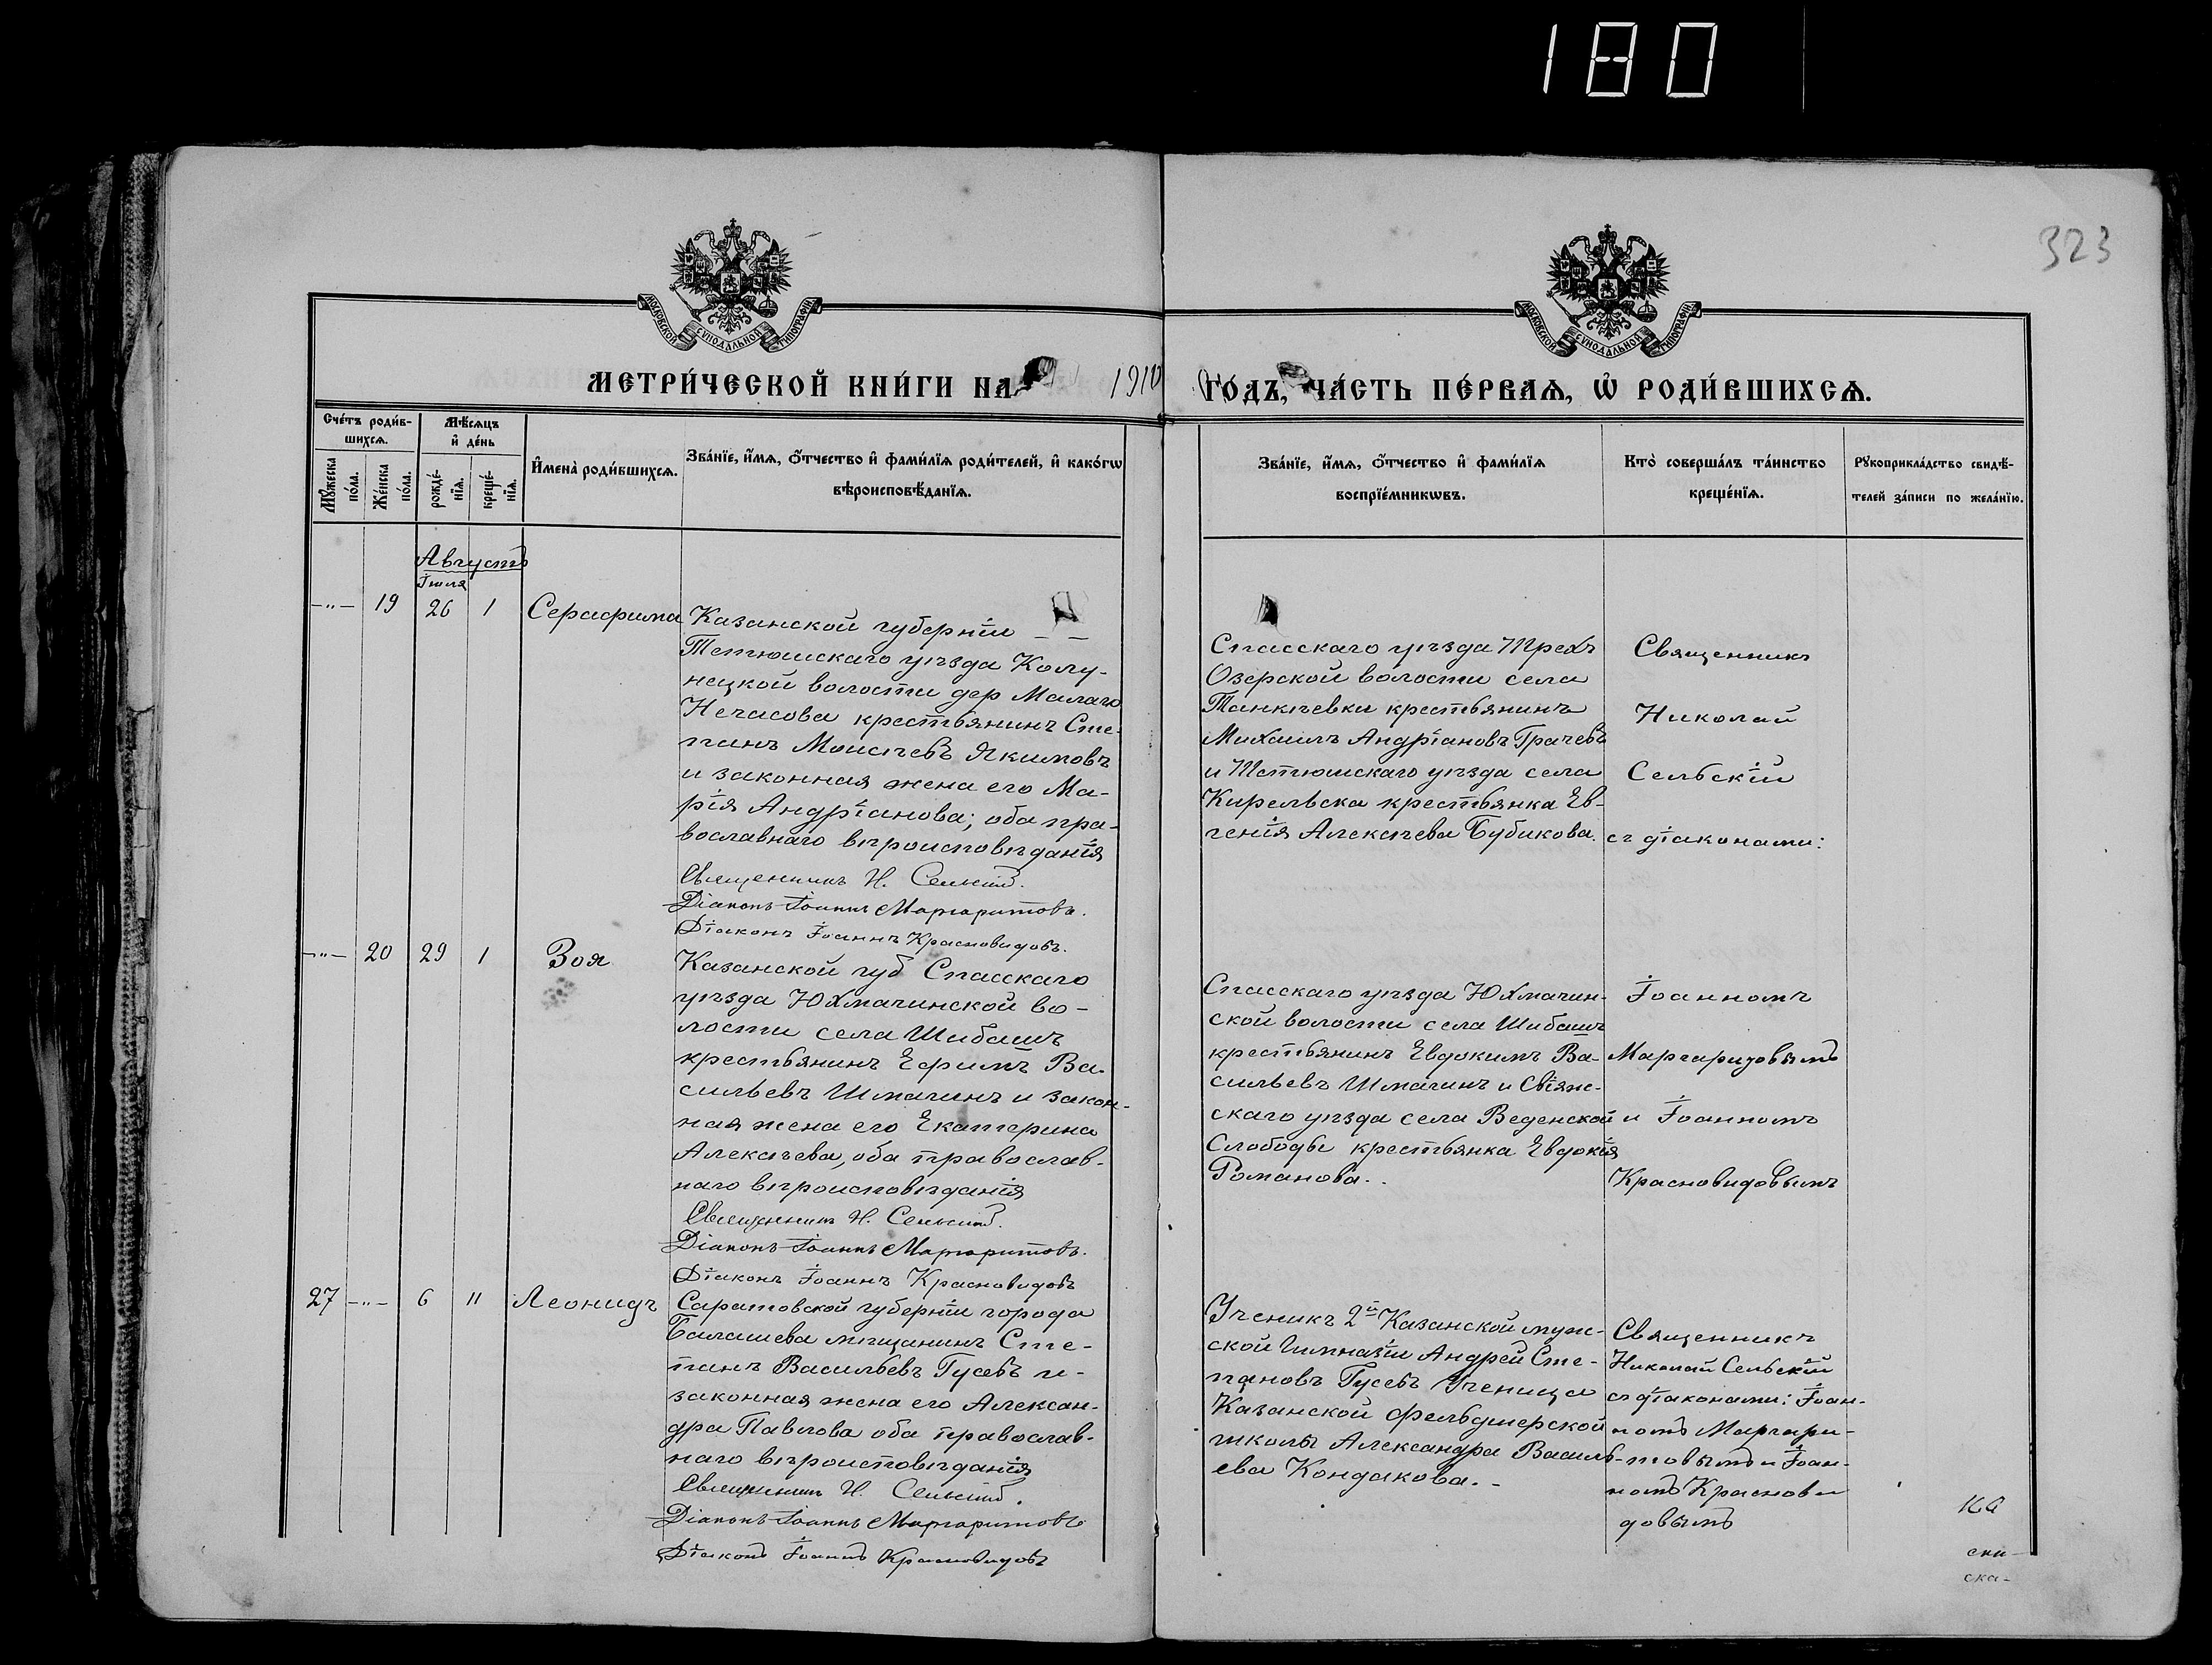 180
323
МОСКОВСКОЙ СѴНОДАЛЬНОЙ ТИПОГРАФІИ
МОСКОВСКОЙ СѴНОДАЛЬНОЙ ТИПОГРАФІИ
МЕТРИ́ЧЕСКОЙ КНИ́ГИ НА 1910 ГО́ДЪ, ЧА́СТЬ ПЕ́РВАѦ, Ѡ҆ РОДИ́ВШИХСѦ.
Сче́тъ роди́в-
шихсѧ.
Мꙋ́жеска по́ла.
Же́нска по́ла.
Мѣ́сѧцъ
и҆ де́нь
рожде́-
нїѧ.
креще́-
нїѧ.
И҆мена̀ роди́вшихсѧ.
Зва́нїе, и҆́мѧ, ѻ҆́тчество и҆ фами́лїѧ роди́телей, и҆ како́гѡ
вѣроисповѣ́данїѧ.
Зва́нїе, и҆́мѧ, ѻ҆́тчество и҆ фами́лїѧ
воспрїе́мникѡвъ.
Кто̀ соверша́лъ та́инство
креще́нїѧ.
Рꙋкоприкла́дство свидѣ́-
телей за́писи по жела́нїю.
Августъ
Іюля
-"- 19 26 1 Серафима
Казанской губерніи - -
Тетюшскаго уѣзда Колу-
нецкой волости дер Малаго
Нечасова крестьянинъ Сте-
панъ Моисѣевъ Якимовъ
и законная жена его Ма-
рія Андріанова; оба пра-
вославнаго вѣроисповѣданія
Священникъ Н. Сельскій.
Діаконъ Іоаннъ Маргаритовъ.
Діаконъ Іоаннъ Красновидовъ.
Спасскаго уѣзда Трехъ
Озерской волости села
Танкѣевки крестьянинъ
Михаилъ Андріановъ Грачевъ
и Тетюшскаго уѣзда села
Кирельска крестьянка Ев-
генія Алексѣева Бубикова.
Священникъ
Николай
Сельскій
съ діаконами:
-"- 20 29 1 Зоя
Казанской губ Спасскаго
уѣзда Юхмачинской во-
лости села Шибашъ
крестьянинъ Ефимъ Ва-
сильевъ Шмагинъ и закон-
ная жена его Екатерина
Алексѣева, оба православ-
наго вѣроисповѣданія
Священникъ Н. Сельскій.
Діаконъ Іоаннъ Маргаритовъ.
Діаконъ Іоаннъ Красновидовъ
Спасскаго уѣзда Юхмачин-
ской волости села Шибашъ
крестьянинъ Евдокимъ Ва-
сильевъ Шмагинъ и Свіяж-
скаго уѣзда села Веденской
Слободы крестьянка Евдокія
Романова..
Іоанномъ
Маргаритовымъ
и Іоанномъ
Красновидовымъ
27 -"- 6 11 Леонидъ
Саратовской губерніи города
Балашева мѣщанинъ Сте-
панъ Васильевъ Гусевъ и-
законная жена его Алексан-
дра Павлова оба православ-
наго вѣроисповѣданія
Священникъ Н. Сельскій.
Діаконъ Іоаннъ Маргаритовъ
Діаконъ Іоаннъ Красновидовъ
Ученикъ 2й Казанской муж-
ской Гимназіи Андрей Сте-
пановъ Гусевъ Ученица
Казанской фельдшерской
школы Александра Василь-
ева Кондакова.-
Священникъ
Николай Сельскій
съ діаконами: Іоан-
номъ Маргари-
товымъ и Іоан-
номъ Краснови
довымъ